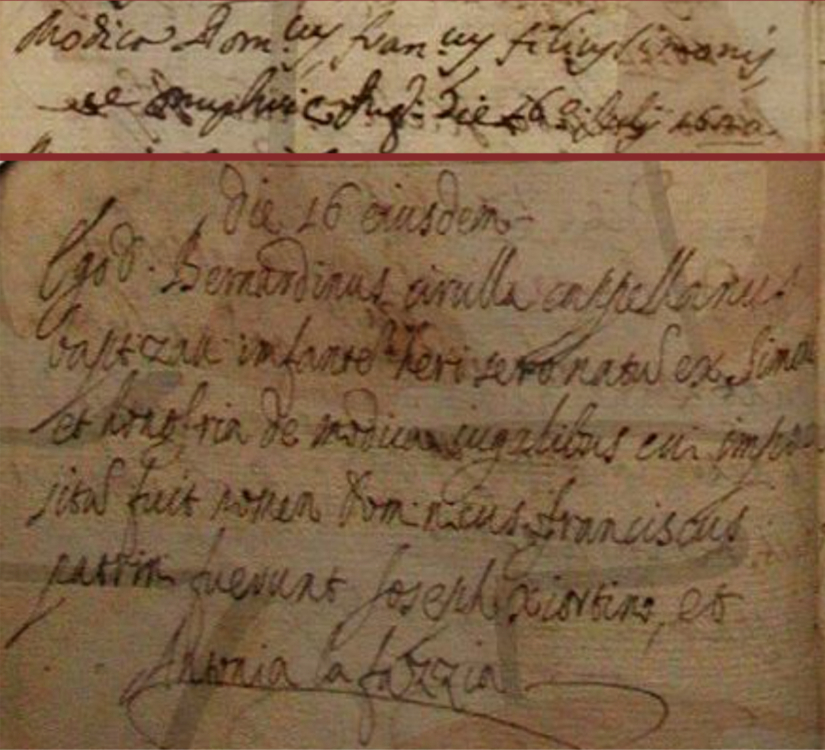 Modica Dom.cus Fran.cus filius Simonis
et onuphrie Jug: die 16 Julij
die 16 eiusdem
Ego D. Bernardinus cirulla cappellanus
baptizavi imfante heri sero natu ex Simo
et honofria de modica iugalibus cui impo
situ fuit nomen Dominicus Franciscus
patrini fuerunt Joseph Xiortino, et
Antonia la fazzia